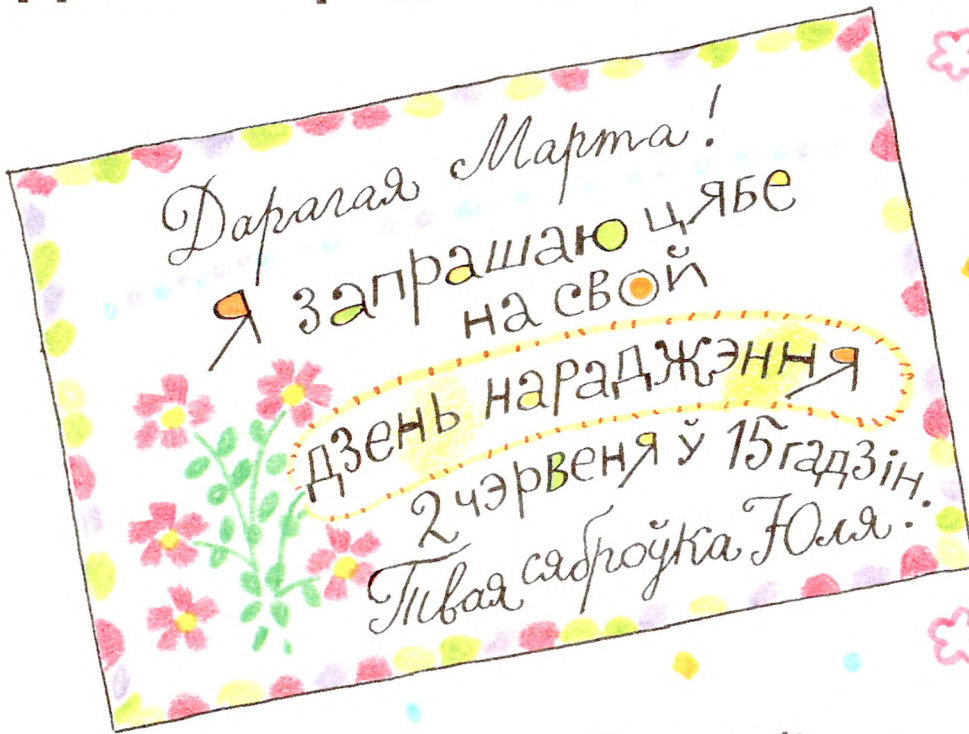 Дарагая Марта!
Я запрашаю цябе
на свой
дзень нараджэння
2 чэрвеня ў 15 гадзін.
Твая сяброўка Юля.